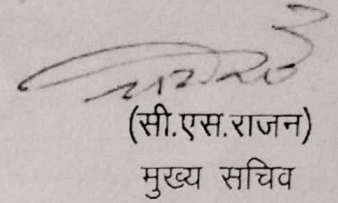 (सी.एस.राजन)
मुख्य सचिव